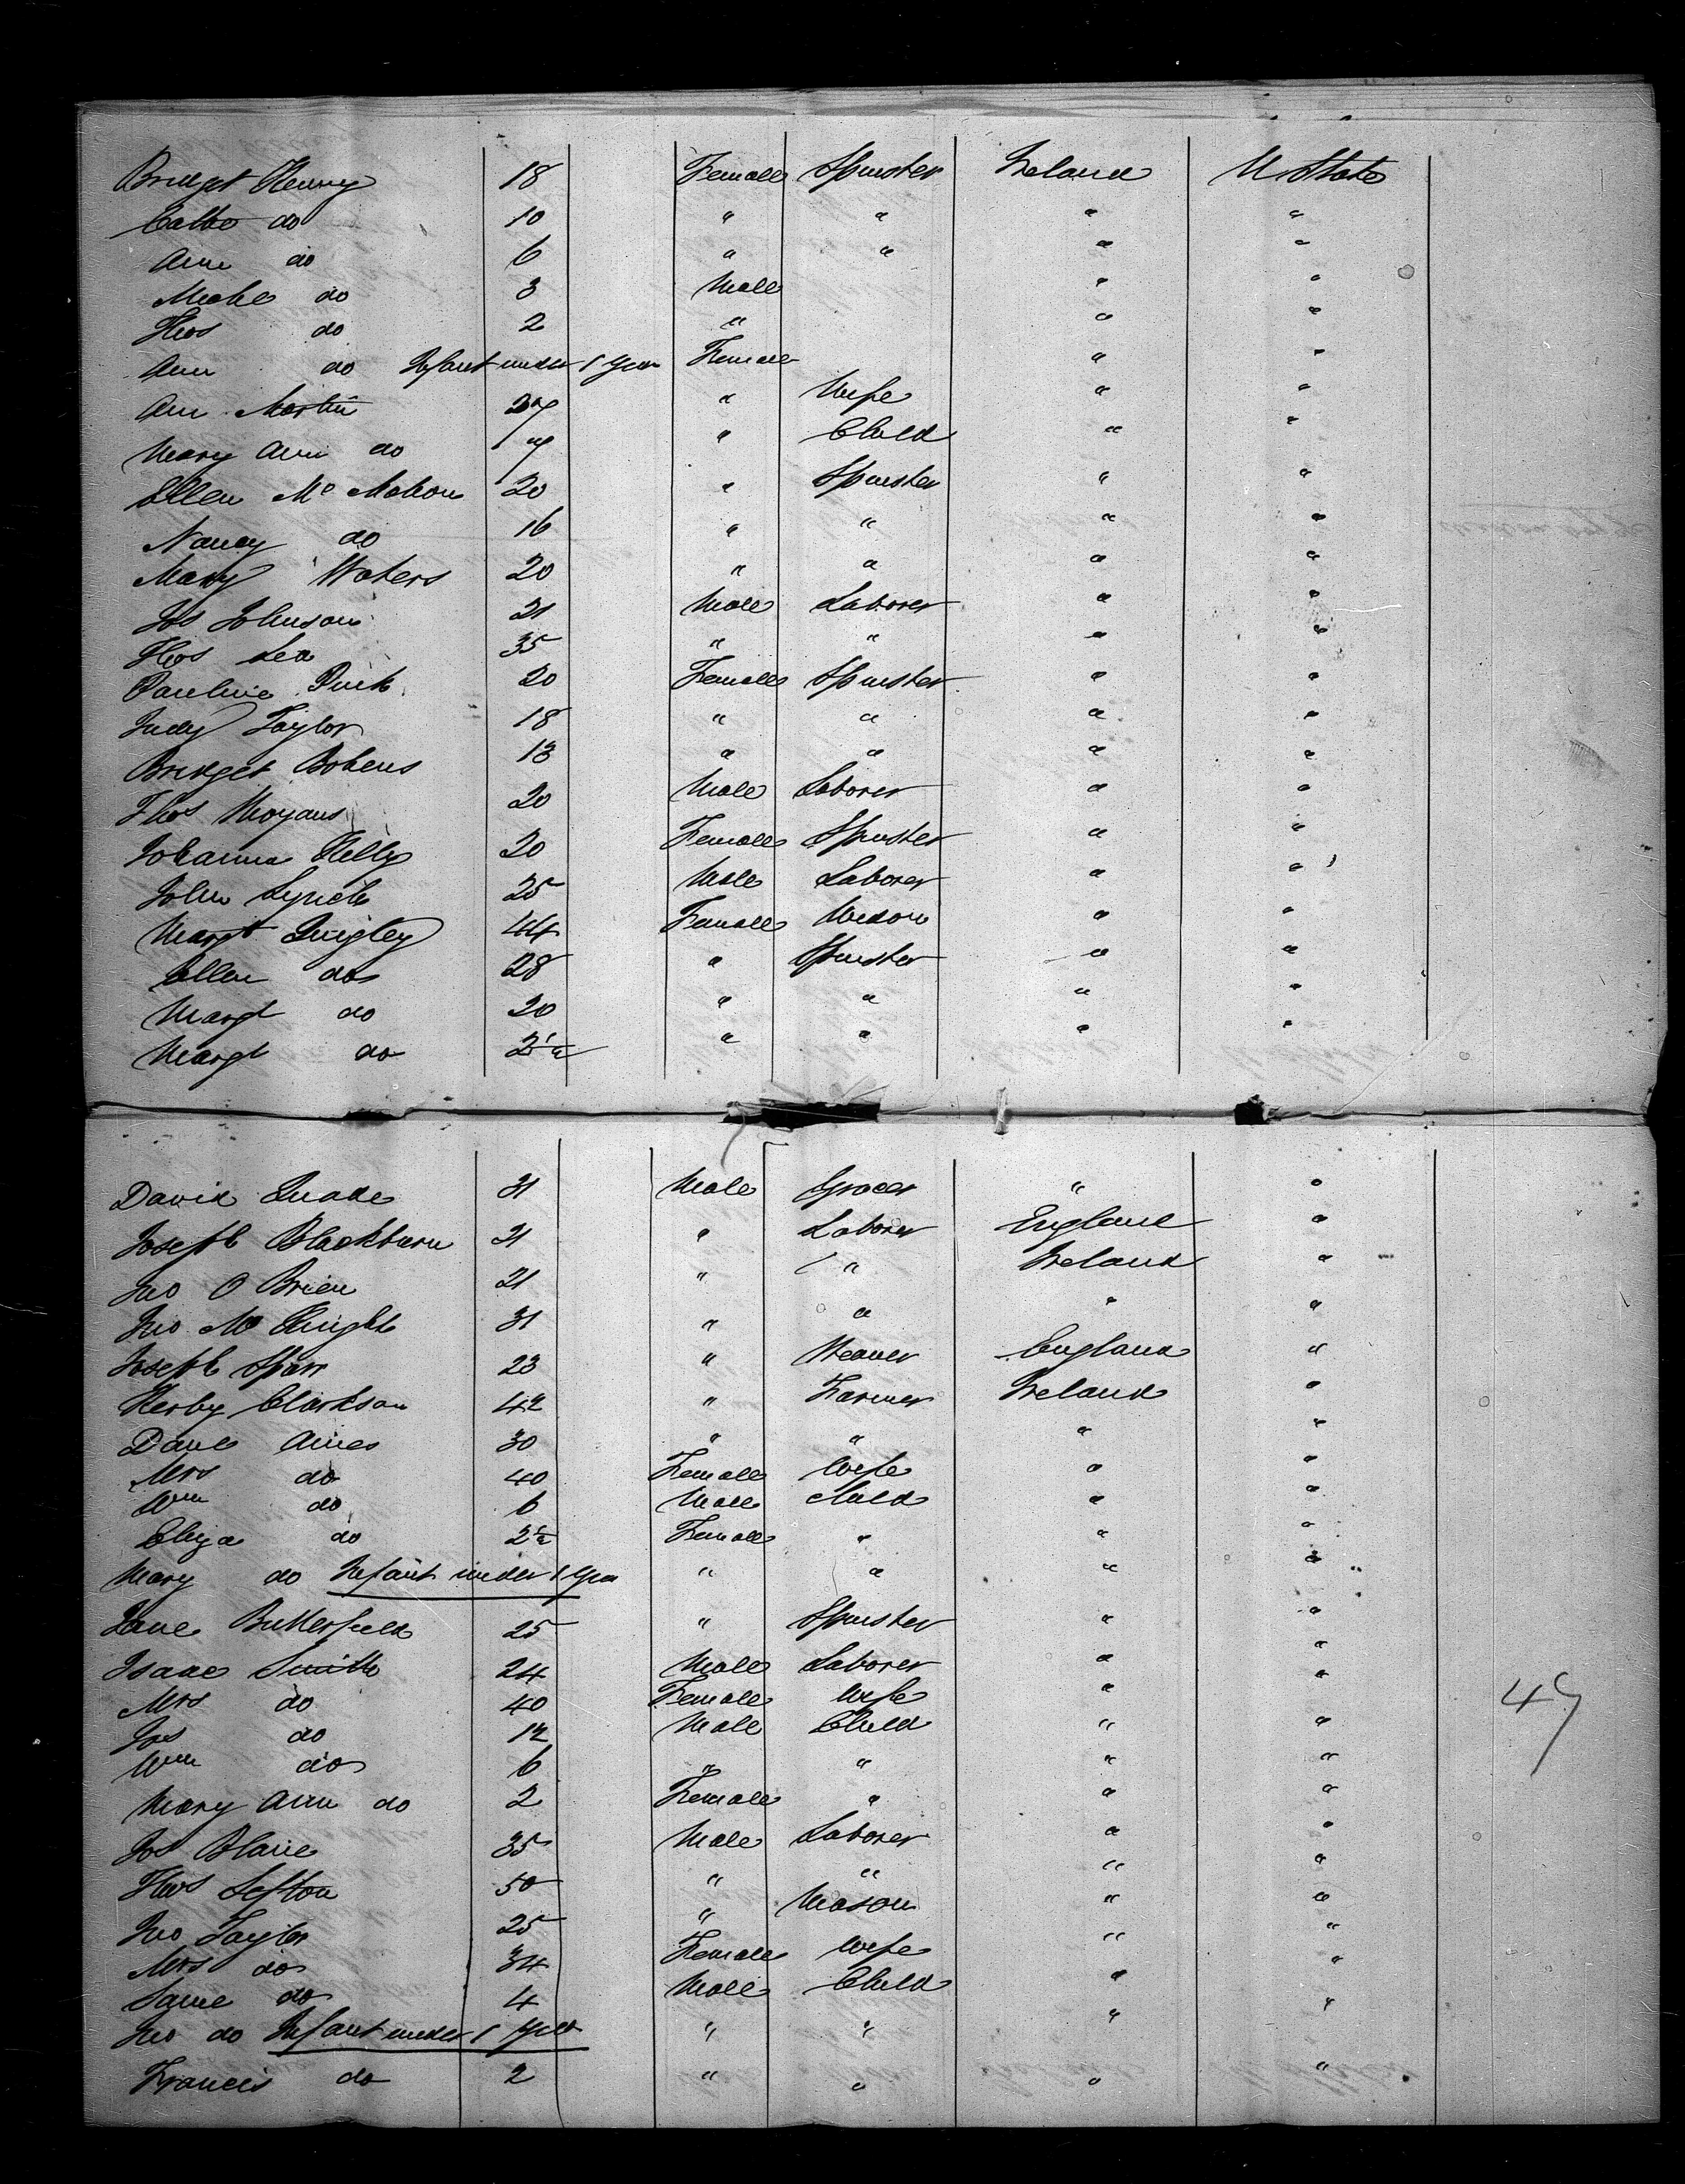 Bridget Henry 18 Female Spinster Ireland U State
Cathe do 10 " " " "
Ann do 6 " " " "
Michl do 3 Male " "
Thos do 2 " " "
Ann do Infant under 1 year Female " "
Ann Martin 27 " Wife " "
Mary Ann do 7 " Child " "
Ellen Mc Mahon 20 " Spinster " "
Nancy do 16 " " " "
Mary Waters 20 " " " "
Jos Johnson 21 Male Laborer " "
Thos Lea 35 " " " "
Pauline 20 Female Spinster " "
Judy Taylor 18 " " " "
Bridget 13 " " " "
Thos 20 Male Laborer " "
Johanna Kelly 20 Female Spinster " "
John Lynch 25 Male Laborer " "
Margt Quigley 44 Female Widow " "
Ellen do 28 " Spinster " "
Margt do 20 " " " "
Margt do " " " "
David Quade 31 Male Grocer " "
Joseph Blackburn 21 " Laborer England "
Jno O Brien 21 " " Ireland "
Jno Mc Knight 31 " " " "
Joseph 23 " Weaver England "
Clarkson 42 " Farmer Ireland "
Danl 30 " " " "
Mrs do 40 Female Wife " "
Wm do 6 Male Child " "
Eliza do Female " " "
Mary do Infant under 1 year " " " "
Jane Butterfield 25 " Spinster " "
Isaac Smith 24 Male Laborer " "
Mrs do 40 Female Wife " "
Jos do 12 Male Child " "
Wm do 6 " " " "
Mary Ann do 2 Female " " "
47
Jos 35 Male Laborer " "
Thos Sefton 50 " " " "
Jno Taylor 25 " Mason " "
Mrs do 34 Female Wife " "
do 4 Male Child " "
Jno do Infant under 1 year " " " "
Francis do 2 " " " "